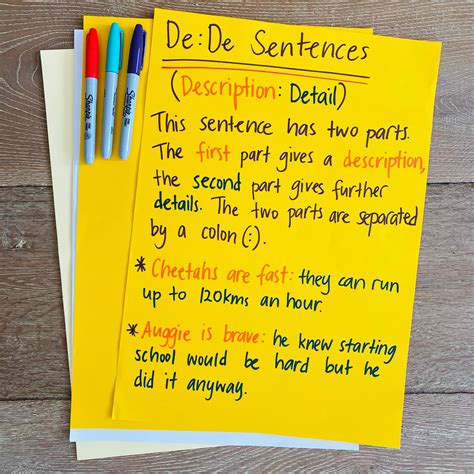 De:De Sentences
(Description: Detail)
This sentence has two parts.
The first part gives a description,
the second part gives further
details. The two parts are separated
by a colon (:).
* Cheetahs are fast: they can run
up to 120kms an hour.
* Auggie is brave: he knew starting
school would be hard but he
did it anyway.
Sharpie
Sharpie
Sharpie